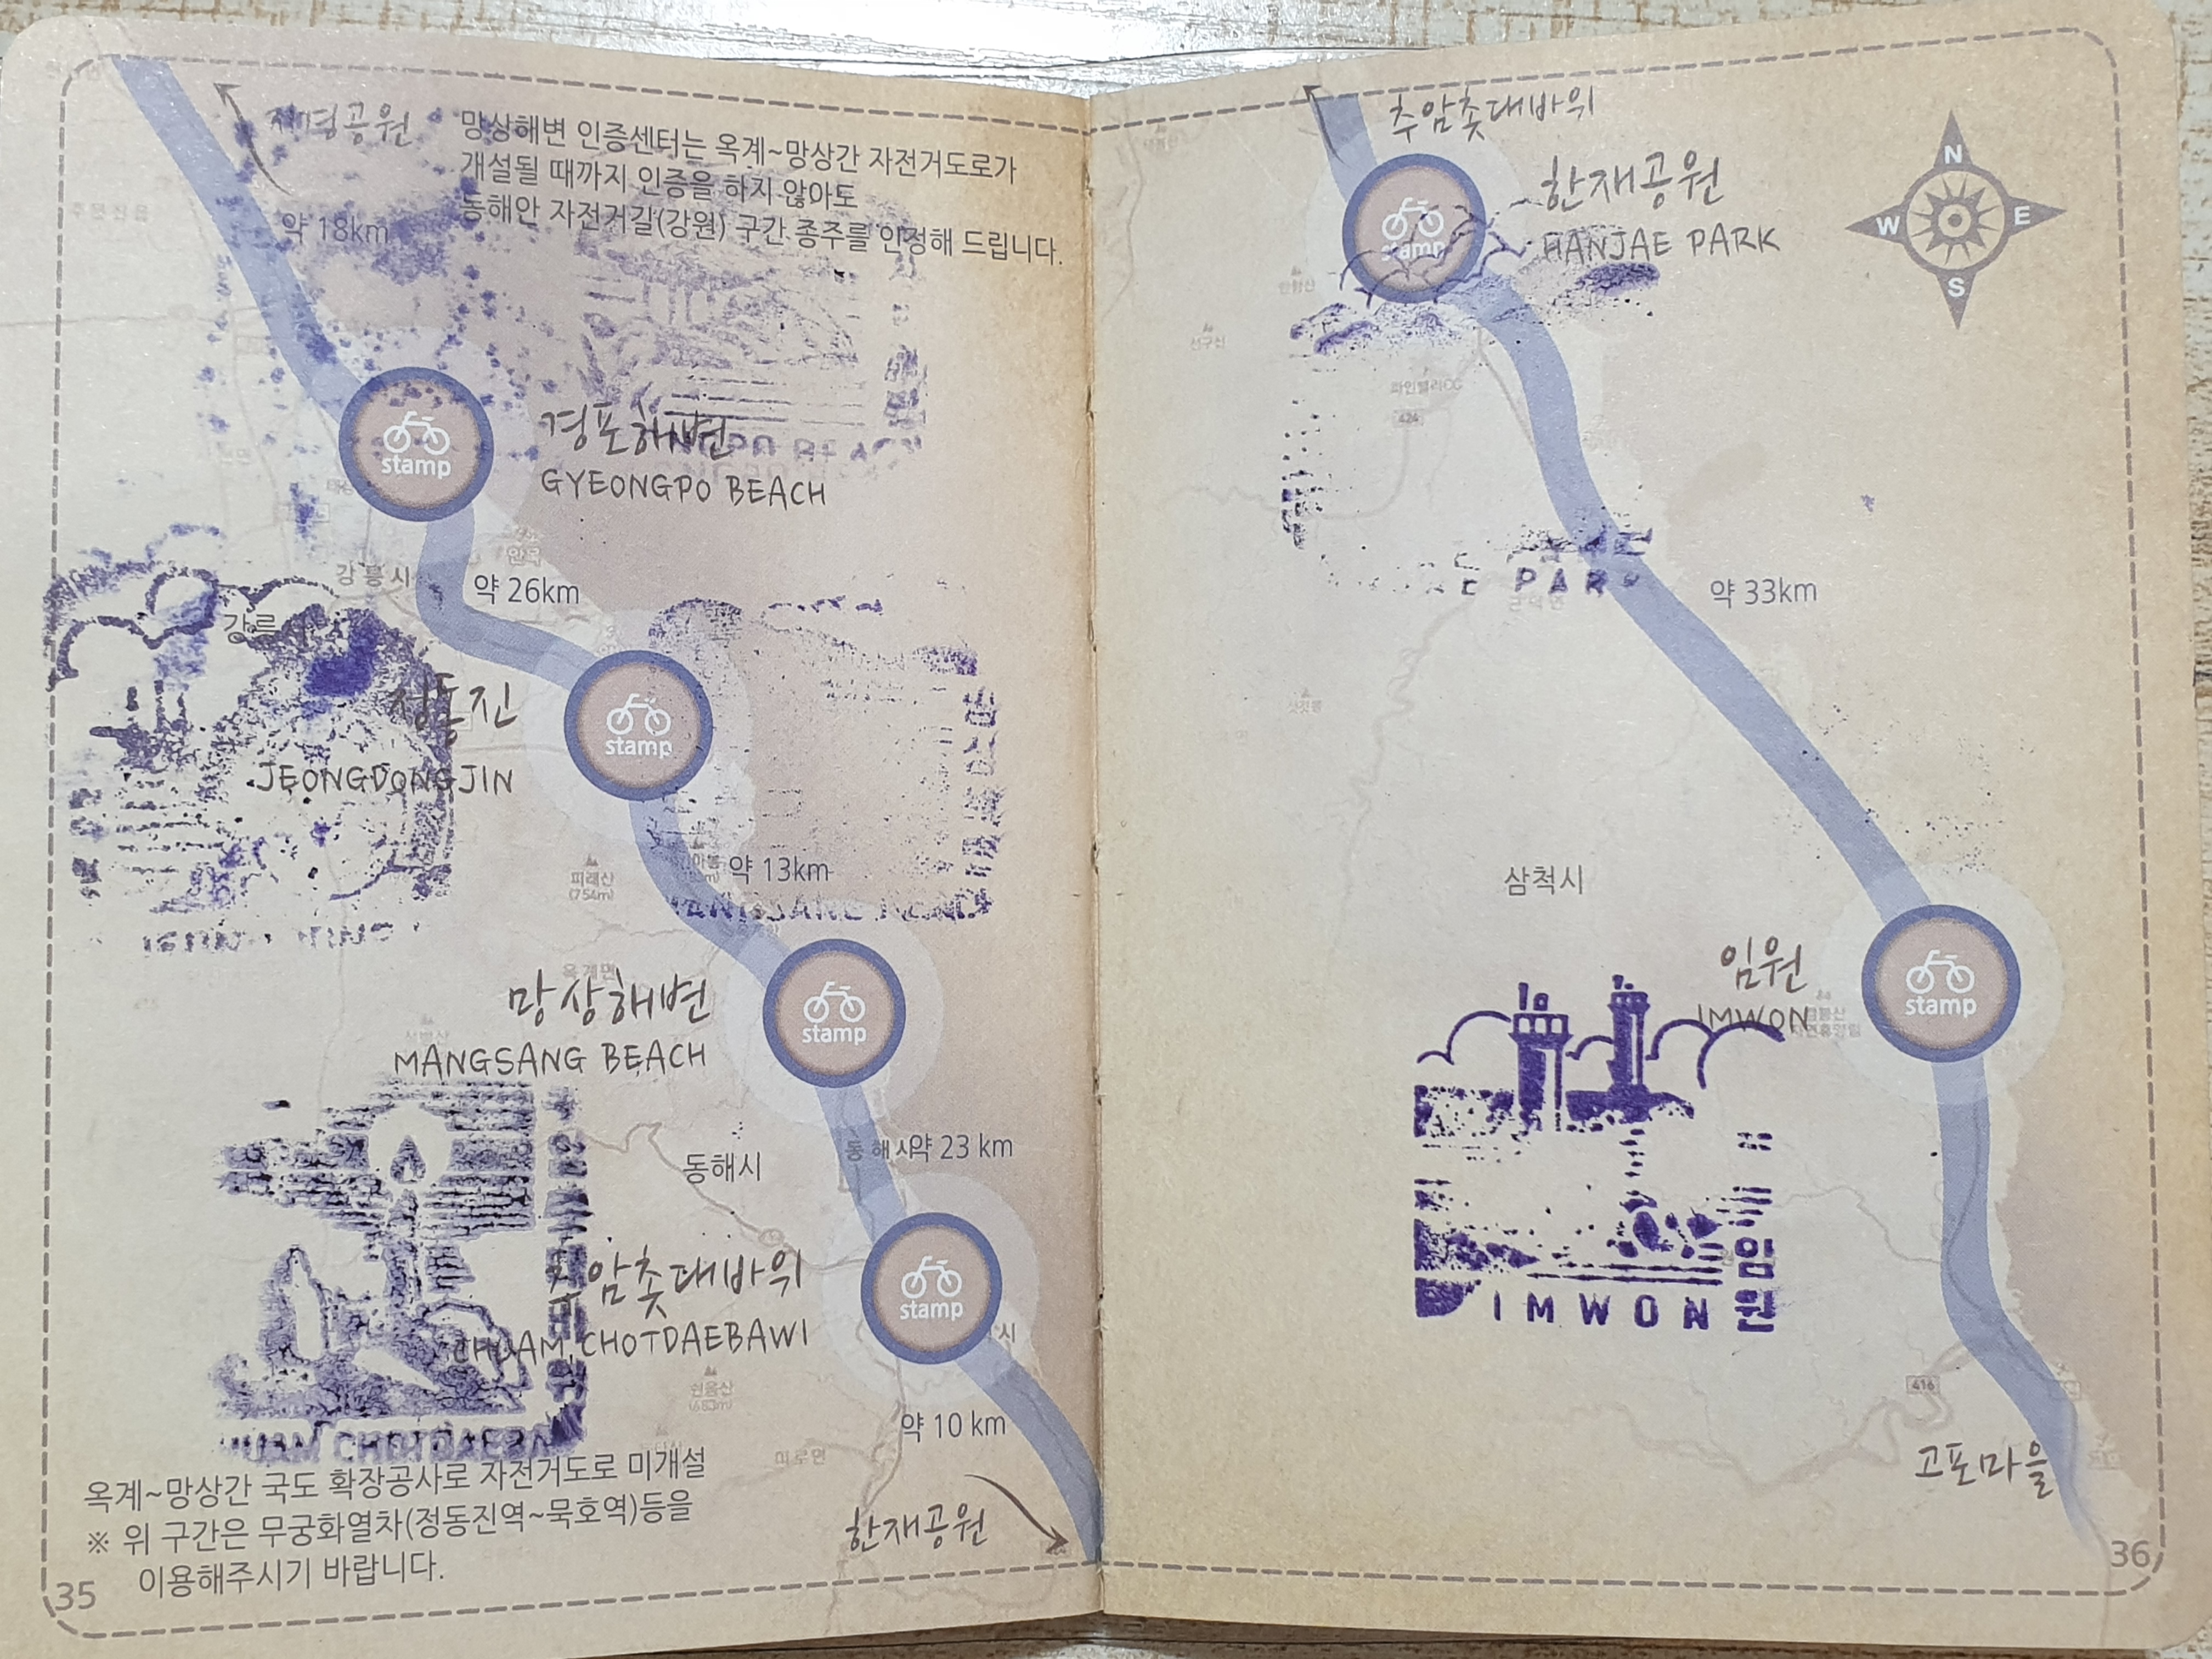 지경공원
망상해변 인증센터는 옥계~망상간 자전거도로가
개설될 때까지 인증을 하지 않아도
동해안 자전거길(강원) 구간 종주를 인정해 드립니다.
약 18km
stamp
경포해변
GYEONGPO BEACH
강릉시
안목
약 26km
강릉
정동진
JEONGDONGJIN
stamp
약 13km
피래산
(754m)
옥계면
망상해변
MANGSANG BEACH
stamp
동해시
동해시
약 23 km
추암촛대바위
CHUAM CHOTDAEBAWI
stamp
시
약 10 km
미로면
CHOTDAEBA
옥계~망상간 국도 확장공사로 자전거도로 미개설
※ 위 구간은 무궁화열차(정동진역~묵호역)등을
이용해주시기 바랍니다.
한재공원
35
추암촛대바위
한재공원
HANJAE PARK
stamp
N
W
E
S
파인밸리CC
424
PARK
근덕면
약 33km
삼척시
임원
IMWON
stamp
임원
IMWON
416
고포마을
36